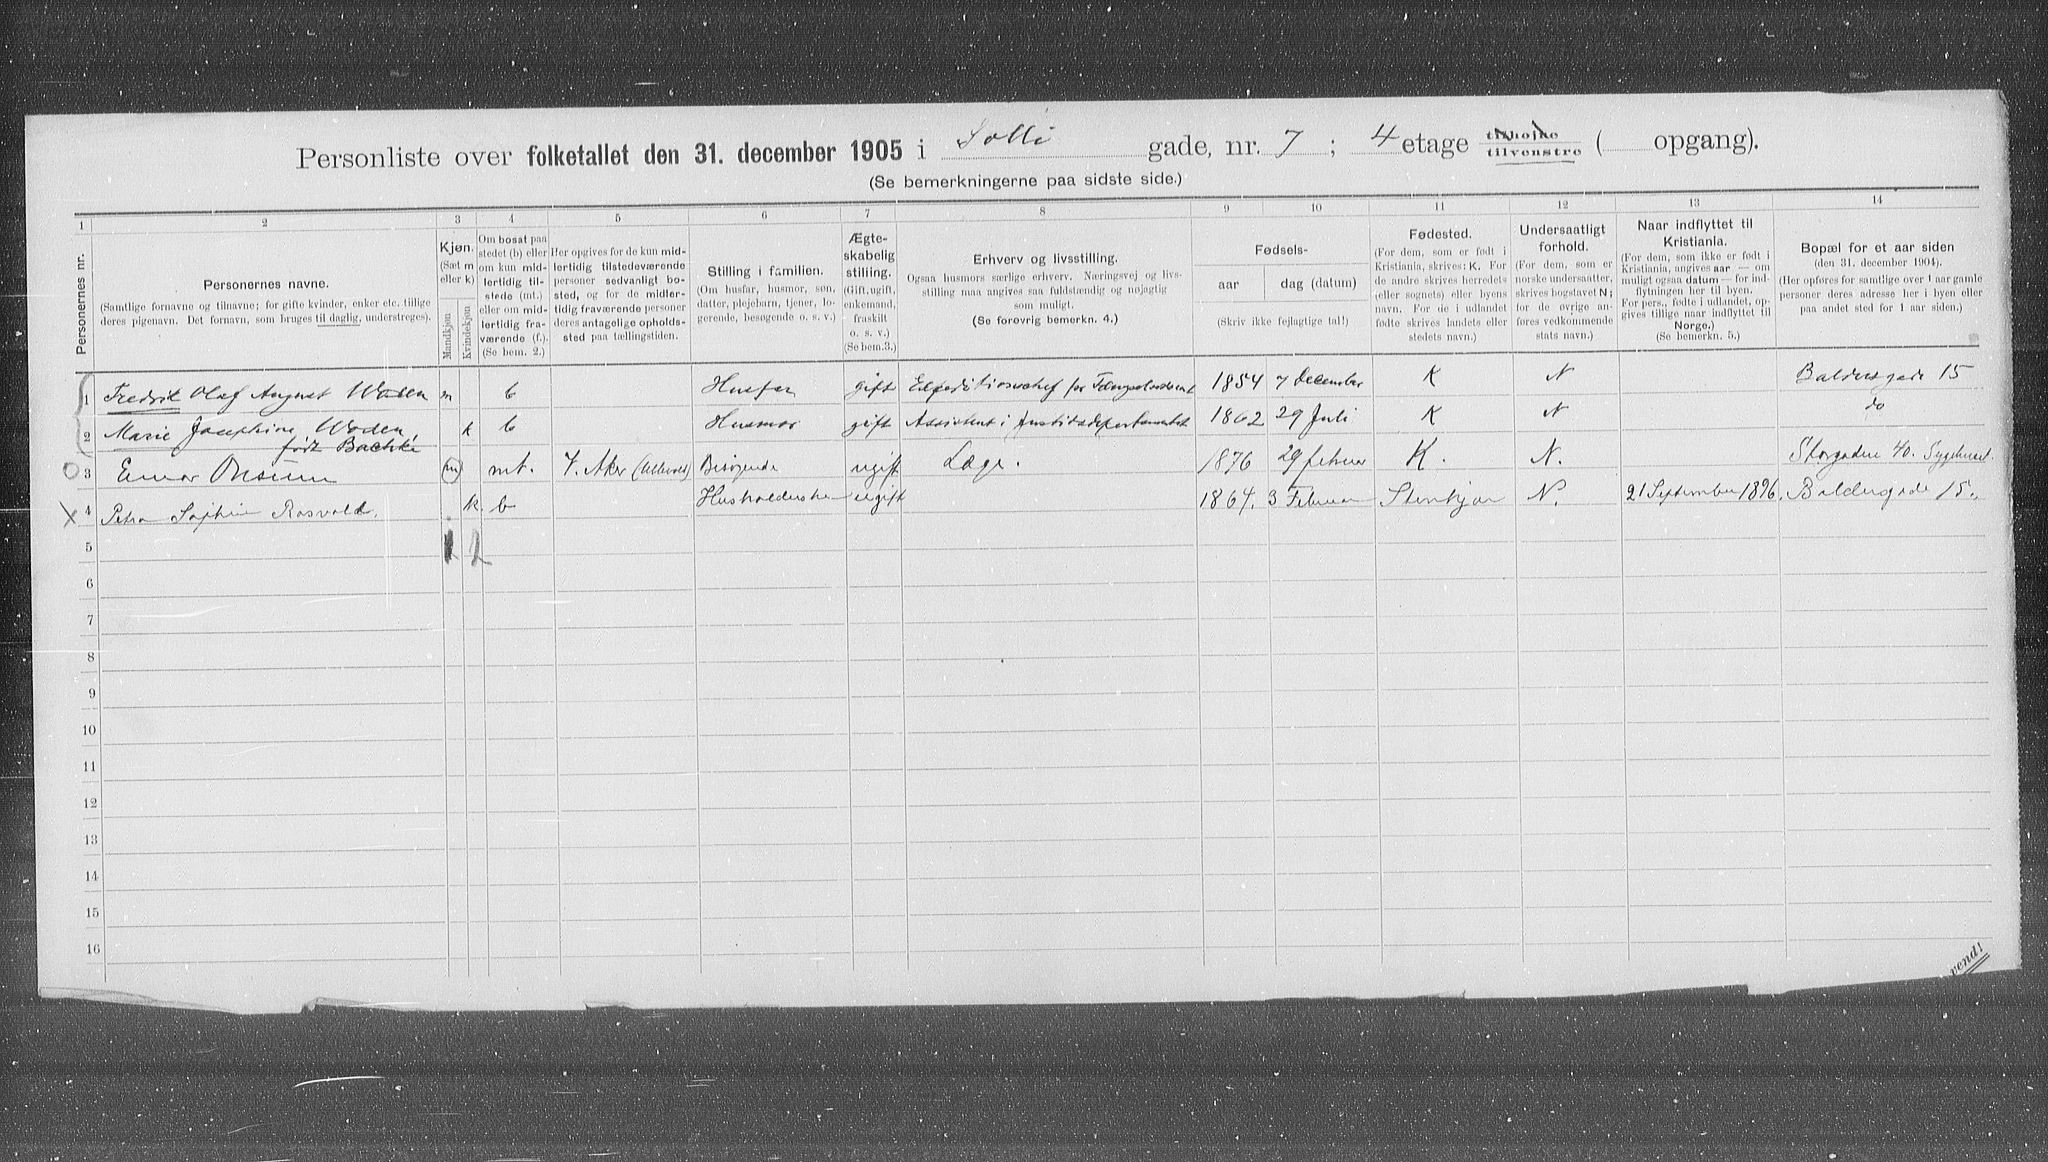 Personliste over folketallet den 31. december 1905 i Solli gade, nr. 7 ; 4 etage tilhøjre tilvenstre ( opgang).
(Se bemerkningerne paa sidste side.)
1 2 3 4 5 6 7 8 9 10 11 12 13 14
Personernes nr.
Personernes navne.
(Samtlige fornavne og tilnavne; for gifte kvinder, enker etc. tillige
deres pigenavn. Det fornavn, som bruges til daglig, understreges).
Kjøn.
(Sæt m
eller k)
Mandkjøn
Kvindekjøn
Om bosat paa
stedet (b) eller
om kun mid-
lertidig til-
stede (mt.)
eller om mid-
lertidig fra-
værende (f.).
(Se bem. 2.)
Her opgives for de kun mid-
lertidig tilstedeværende
personer sedvanligt bo-
sted, og for de midler-
tidig fraværende personer
deres antagelige opholds-
sted paa tællingstiden.
Stilling i familien.
(Om husfar, husmor, søn,
datter, plejebarn, tjener, lo-
gerende, besøgende o. s. v.)
Ægte-
skabelig
stilling.
(Gift, ugift,
enkemand,
fraskilt
o. s. v.)
(Se bem.3.)
Erhverv og livsstilling.
Ogsaa husmors særlige erhverv. Næringsvej og livs-
stilling maa angives saa fuldstændig og nøjagtig
som muligt.
(Se forøvrig bemerkn. 4.)
Fødsels-
aar dag (datum)
(Skriv ikke fejlagtige tal!)
Fødested.
(For dem, som er født i
Kristiania, skrives: K. For
de andre skrives herredets
(eller sognets) eller byens
navn. For de i udlandet
fødte skrives landets eller
stedets navn.)
Undersaatligt
forhold.
(For dem, som er
norske undersaatter,
skrives bogstavet N;
for de øvrige an-
føres vedkommende
stats navn.)
Naar indflyttet til
Kristiania.
(For dem, som ikke er født i
Kristiania, angives aar — om
muligt ogsaa datum — for ind-
flytningen her til byen.
For pers., fødte i udlandet, op-
gives tillige naar indflyttet til
Norge.)
(Se bemerkn. 5.)
Bopæl for et aar siden
(den 31. december 1904).
(Her opføres for samtlige over 1 aar gamle
personer deres adresse her i byen eller
paa andet sted for 1 aar siden.)
1 Fredrik Olaf August m b Husfar gift 1854 7 December K N Baldersgade 15
2 Marie Josephine k b Husmor gift Assistent i 1862 29 Juli K N do
født Backke
3 Einar Onsum m mt. V. Aker (Ullevold) Besøgende ugift Læge. 1876 29 februar K. N. Storgaden 40. Sygehuset.
4 Petra Sophie Rosvold. k. b ugift 1864. 3 Februar Stenkjær N. 21 September 1896. Baldersgade 15.
5 2
6
7
8
9
10
11
12
13
14
15
16
vend!